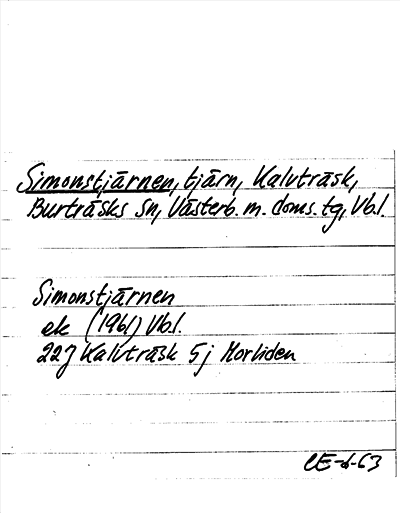 Simonstjärnen, tjärn, Kalvträsk,
Burträsks sn, Västerb. m. doms. tg, Vbl.
Simonstjärnen
ek (1961) Vbl.
22J Kalvträsk 5j Morliden
CE-6-63